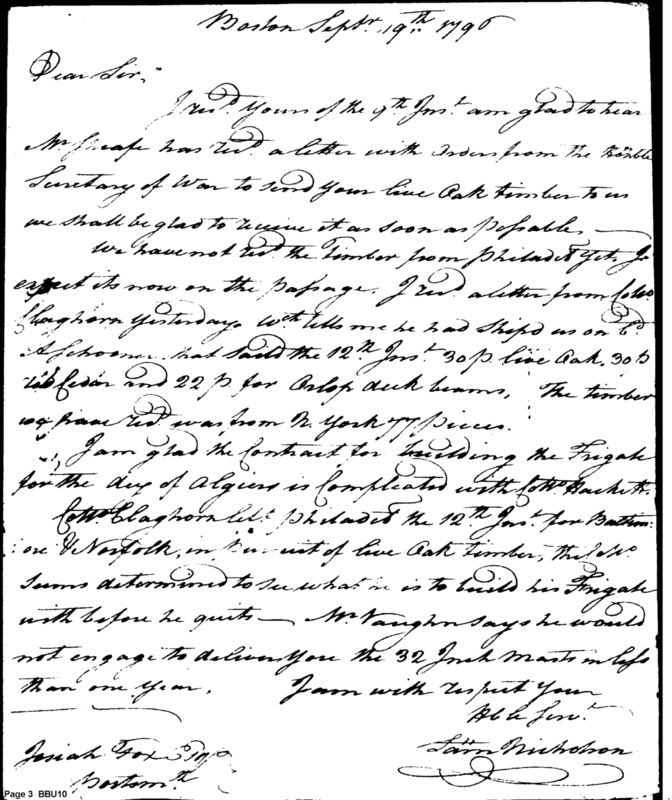 Boston Septr. 19th 1796
Dear Sir,
I recd. yours of the 9th Inst. am glad to hear
Mr Sheafe has recd. a letter with orders from the Honble
Secretary of War to send your live Oak timber to us
we shall be glad to receive it as soon as possable,
We have not recd. the timber from philadel yet, I
expect its now on the passage. I recd. a letter from Colo.
Claghorn yesterday, wch. tells me he had shipd us on bd.
A Schooner that saild the 12th Inst. 30 p. live Oak. 30 p
red Cedar and 22 p for Orlop deck beams, The timber
we have recd. was from N York 77 pieces.
I am glad the Contract for building the Frigate
for the dey of Algiers is Compleated with Colo. Hackett.
Colo. Claghorn left philadel the 12th Inst. for Baltim:
:ore & Norfolk, in Pursuit of live Oak timber, the
seems determined to see what he is to build his Frigate
with before he quits — Mr Vaughn says he would
not engage to deliver you the 32 Inch Masts in less
than one year. I am with respect your
Hble Servt.
Saml Nicholson
Josiah Fox Esqr
Portsmth
Page 3 BBU10